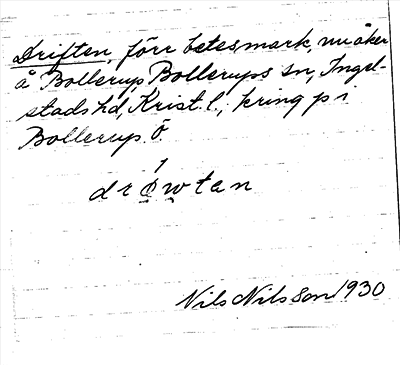 Driften, förr betesmark, nu åker
å Bollerup, Bollerups sn, Ingel-
stads hd, Krist. l., kring p i
Bollerup. Ö
drǿwtan
Nils Nilsson 1930